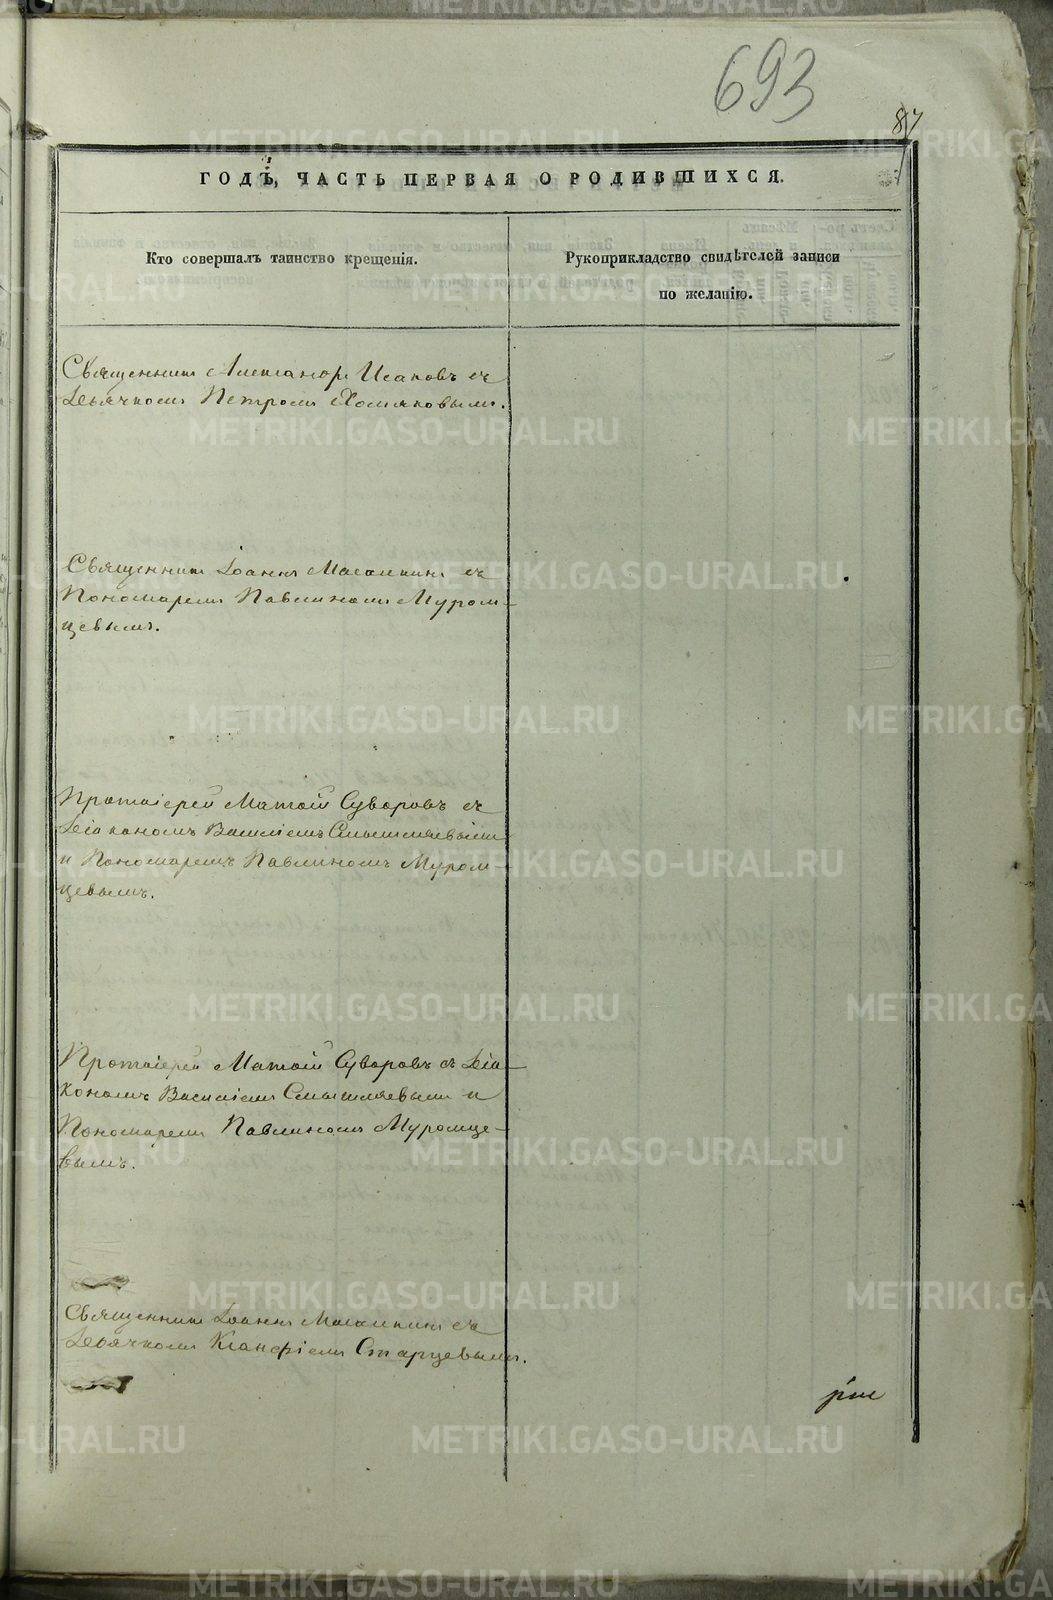 693
87
ГОДЪ, ЧАСТЬ ПЕРВАЯ О РОДИВШИХСЯ.
Кто совершалъ таинство крещенія.
Рукоприкладство свидѣтелей записи
по желанію.
Священникъ Александръ Исаковъ съ
Дьячкомъ Петромъ Хомяковымъ.
Священникъ Іоаннъ съ
Пономаремъ Павлиномъ Муром-
цевымъ.
Протоіерей Матѳій Суворовъ съ
Діакономъ Василіемъ Смышляевымъ
и Пономаремъ Павлиномъ Муром-
цевымъ.
Протоіерей Матѳій Суворовъ съ Діа-
кономъ Василіемъ Смышляевымъ и
Пономаремъ Павлиномъ Муромце-
вымъ.
Священникъ Іоаннъ съ
Дьячкомъ Старцевымъ.
METRIKI.GASO-URAL.RU